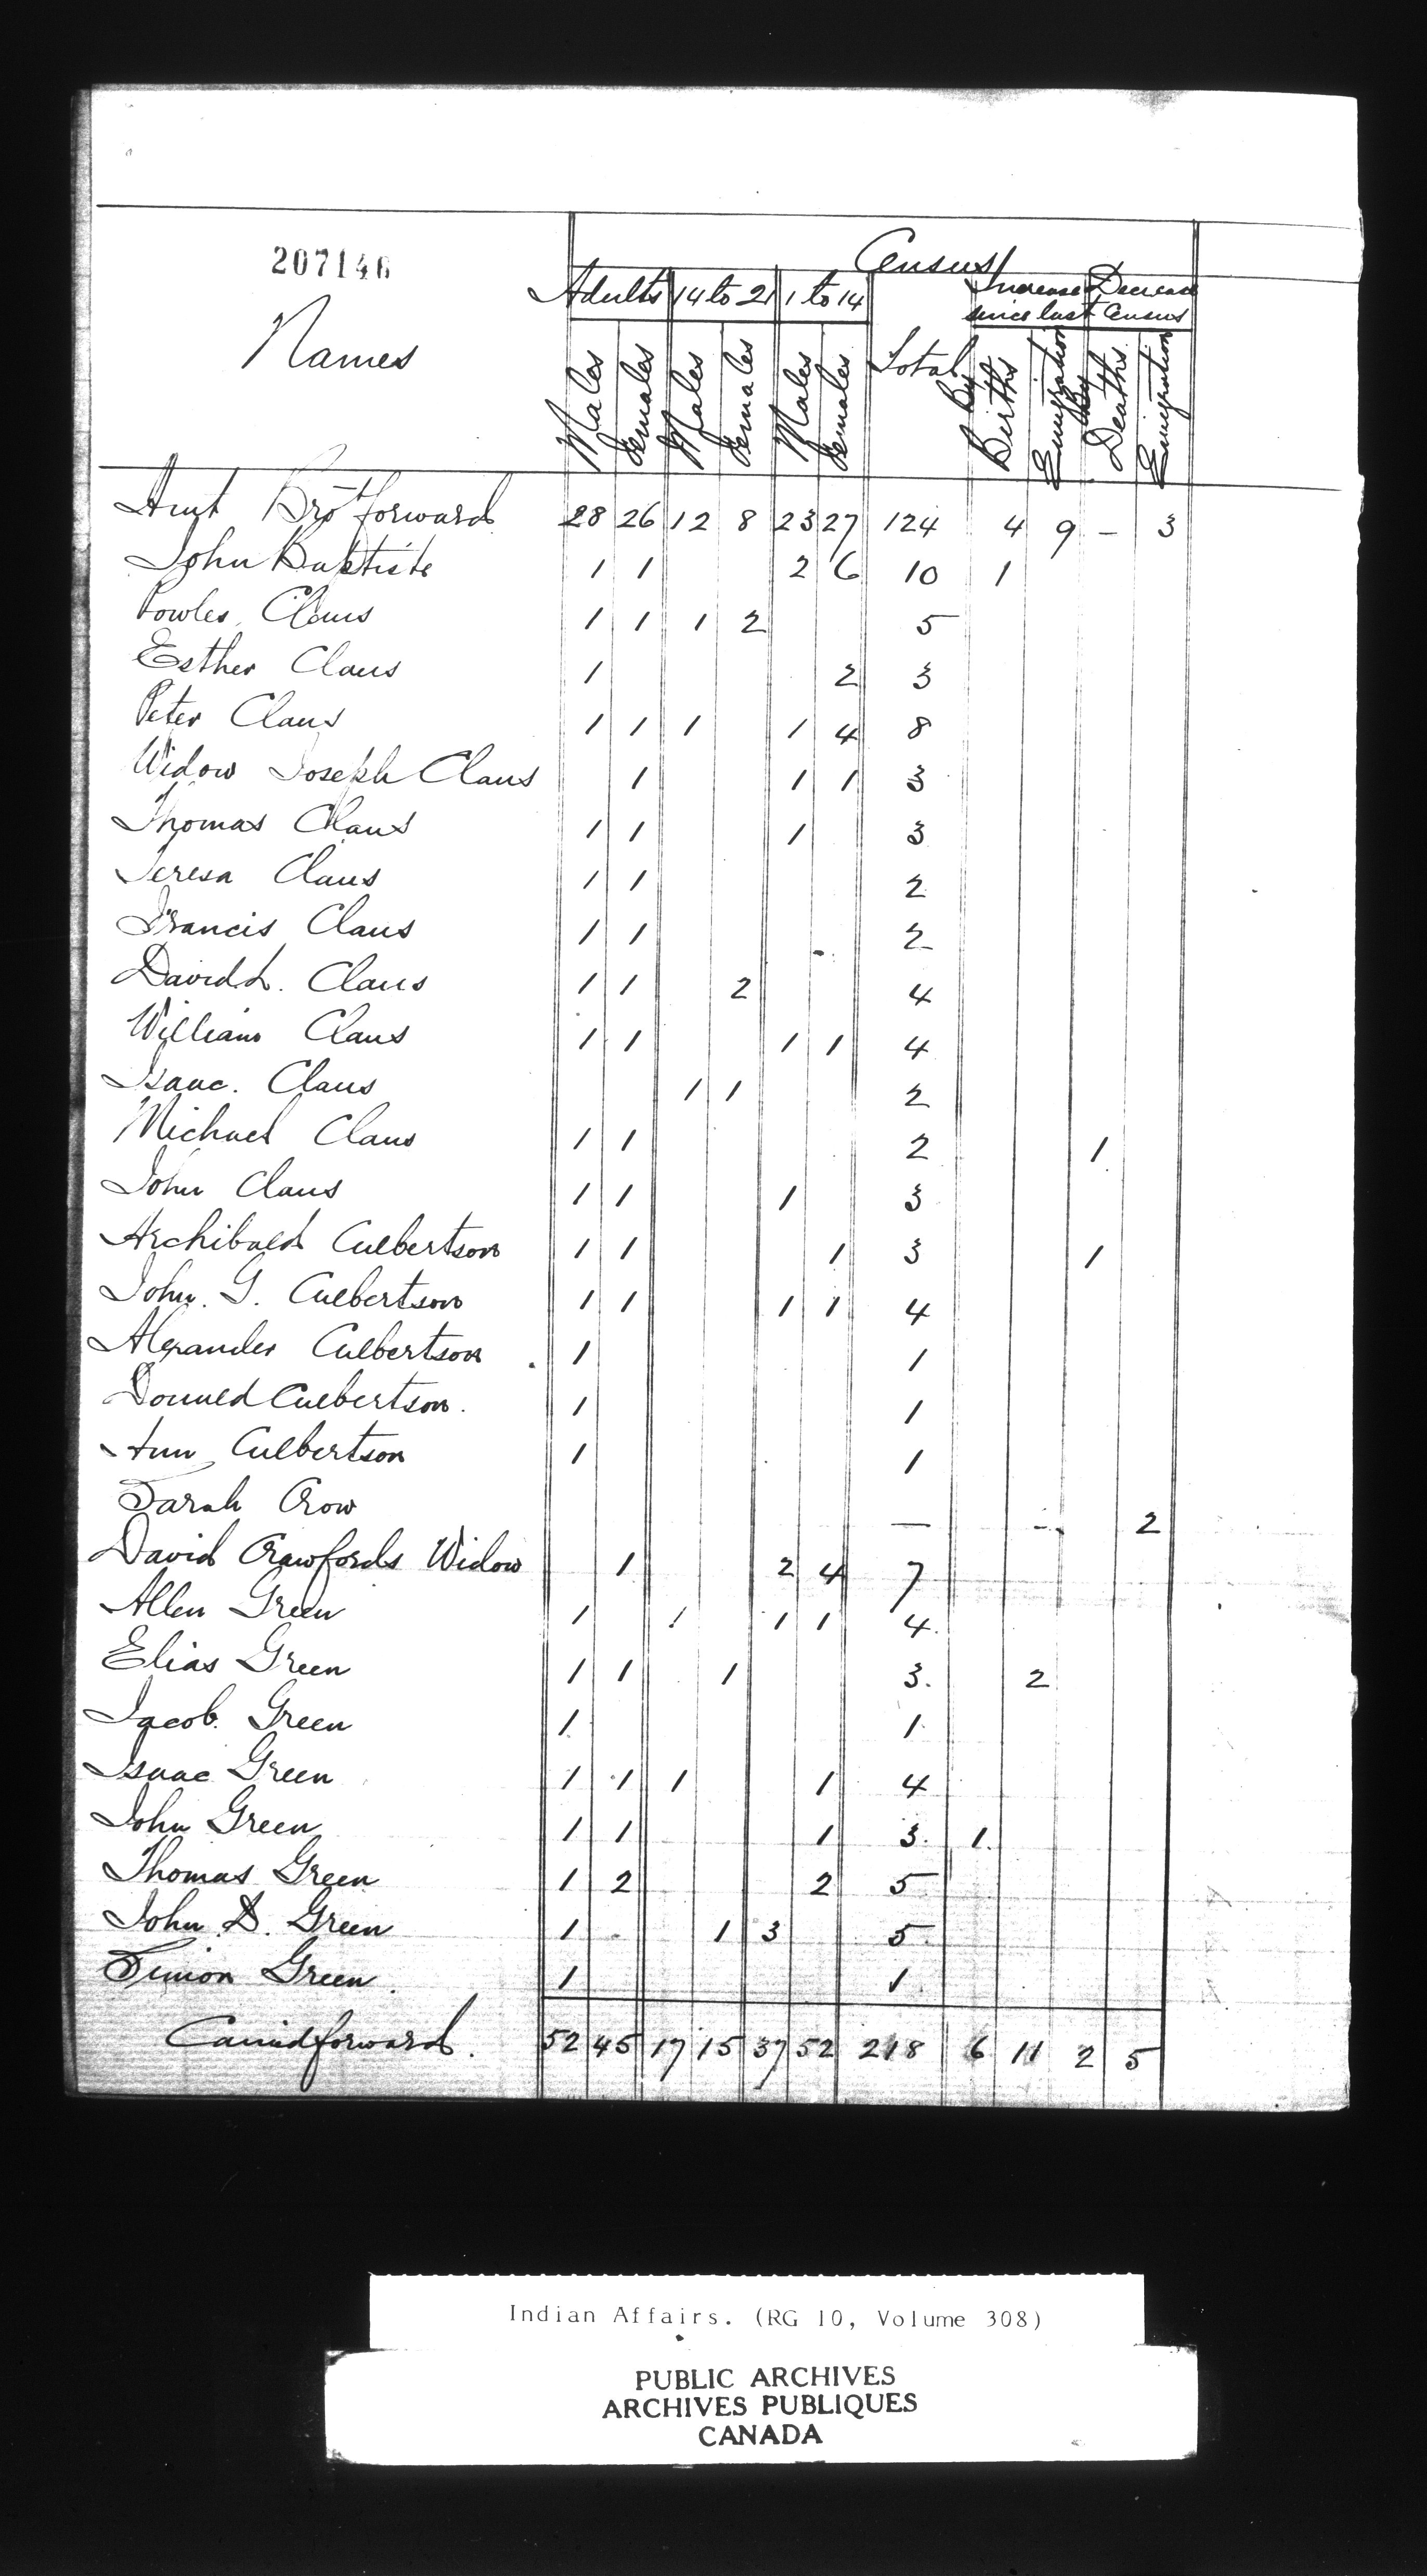 207146
Census
Adults 14 to 21 1 to 14 Increase Decrease
since last Census
Names Males Females Males Females Males Females Total By Births Emigration By Deaths Emigration
Amt Brot forward 28 26 12 8 23 27 124 4 9 – 3
John Baptiste 1 1 2 6 10 1
Powles Claus 1 1 1 2 5
Esther Claus 1 2 3
Peter Claus 1 1 1 1 4 8
Widow Joseph Claus 1 1 1 3
Thomas Claus 1 1 1 3
Teresa Claus 1 1 2
Francis Claus 1 1 2
David L. Claus 1 1 2 4
William Claus 1 1 1 1 4
Isaac. Claus 1 1 2
Michael Claus 1 1 2 1
John Claus 1 1 1 3
Archibald Culbertson 1 1 1 3 1
John. G. Culbertson 1 1 1 1 4
Alexander Culbertson 1 1
Donald Culbertson. 1 1
Ann Culbertson 1 1
Sarah Crow — - 2
David Crawfords Widow 1 2 4 7
Allen Green 1 1 1 1 4.
Elias Green 1 1 1 3. 2
Jacob. Green 1 1
Isaac Green 1 1 1 1 4
John Green 1 1 1 3. 1
Thomas Green 1 2 2 5
John D. Green 1 1 3 5
Simon Green. 1 1
Carried forward. 52 45 17 15 37 52 218 6 11 2 5
Indian Affairs. (RG 10, Volume 308)
PUBLIC ARCHIVES
ARCHIVES PUBLIQUES
CANADA